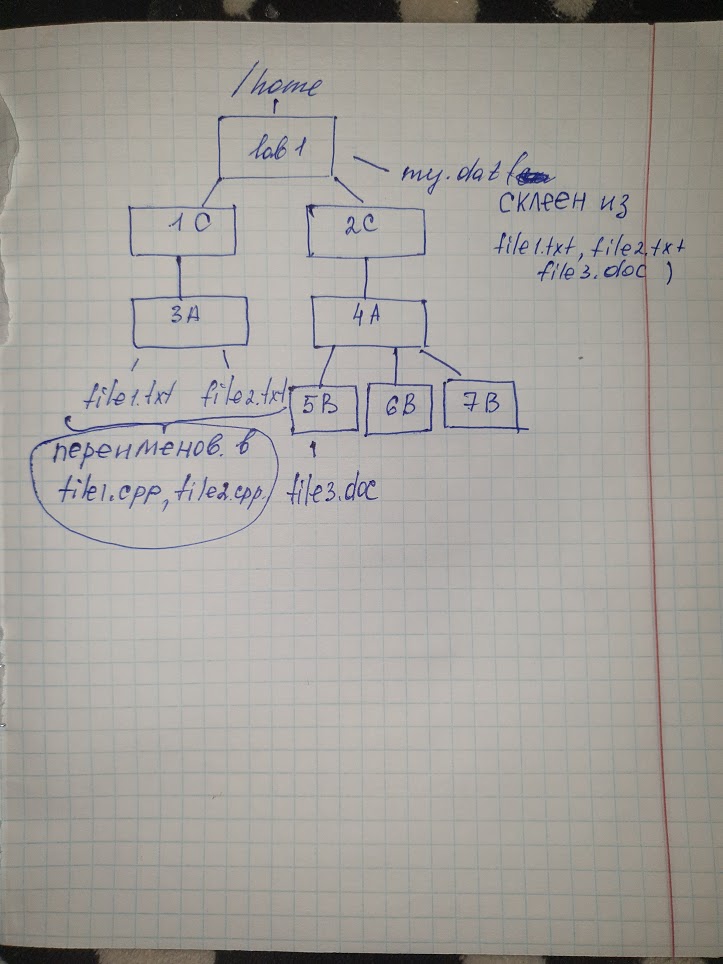 /home
lab1
my.dat (
склеен из
1C
2C
file1.txt, file2.txt
file3.doc )
3A
4A
file1.txt
file2.txt
5B
6B
7B
переименов. в
file1.cpp, file2.cpp.
file3.doc